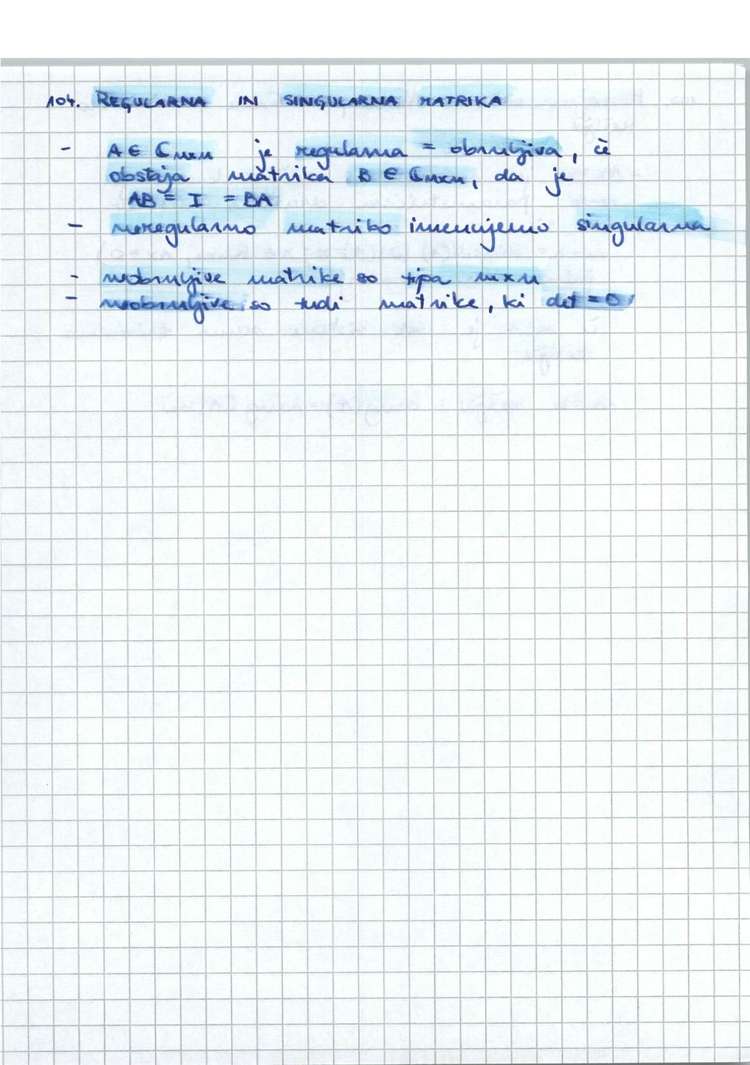 104. REGULARNA IN SINGULARNA MATRIKA
- A ∈ Cnxn je regularna = obrnljiva, če
obstaja matrika B ∈ Cnxn, da je
AB = I = BA
- neregularno matriko imenujemo singularna
- neobrnljive matrike so tipa mxn
- neobrnljive so tudi matrike, ki det = 0